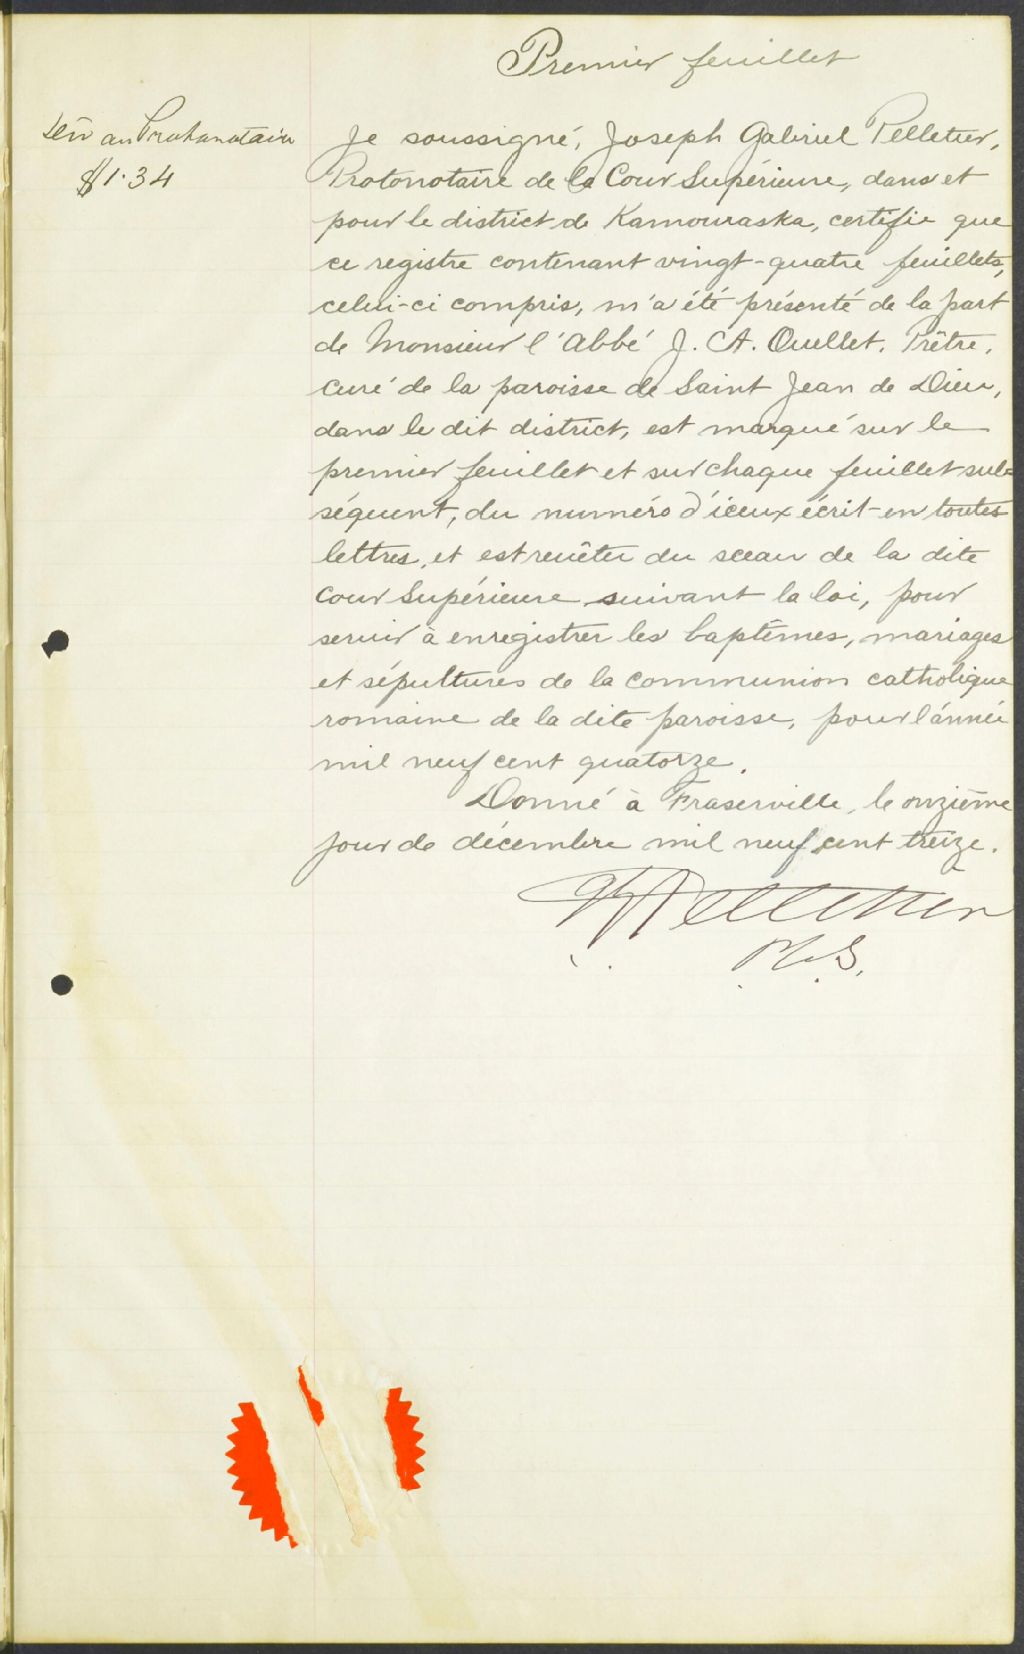 Premier feuillet
au Protonotaire
$1.34
Je soussigné, Joseph Gabriel Pelletier,
Protonotaire de la Cour Supérieure, dans et
pour le district de Kamouraska, certifie que
ce registre contenant vingt-quatre feuillets,
celui-ci compris, m'a été présenté de la part
de Monsieur l'Abbé J. A. Ouellet, Prêtre,
curé de la paroisse de Saint Jean de Dieu,
dans le dit district, est marqué sur le
premier feuillet et sur chaque feuillet sub=
séquent, du numéro d'iceux écrit en toutes
lettres, et est revêtu du sceau de la dite
Cour Supérieure suivant la loi, pour
servir à enregistrer les baptêmes, mariages
et sépultures de la Communion catholique
romaine de la dite paroisse, pour l'année
mil neuf cent quatorze.
Donné à Fraserville, le onzième
jour de décembre mil neuf cent treize.
Pelletier
P.C.S.